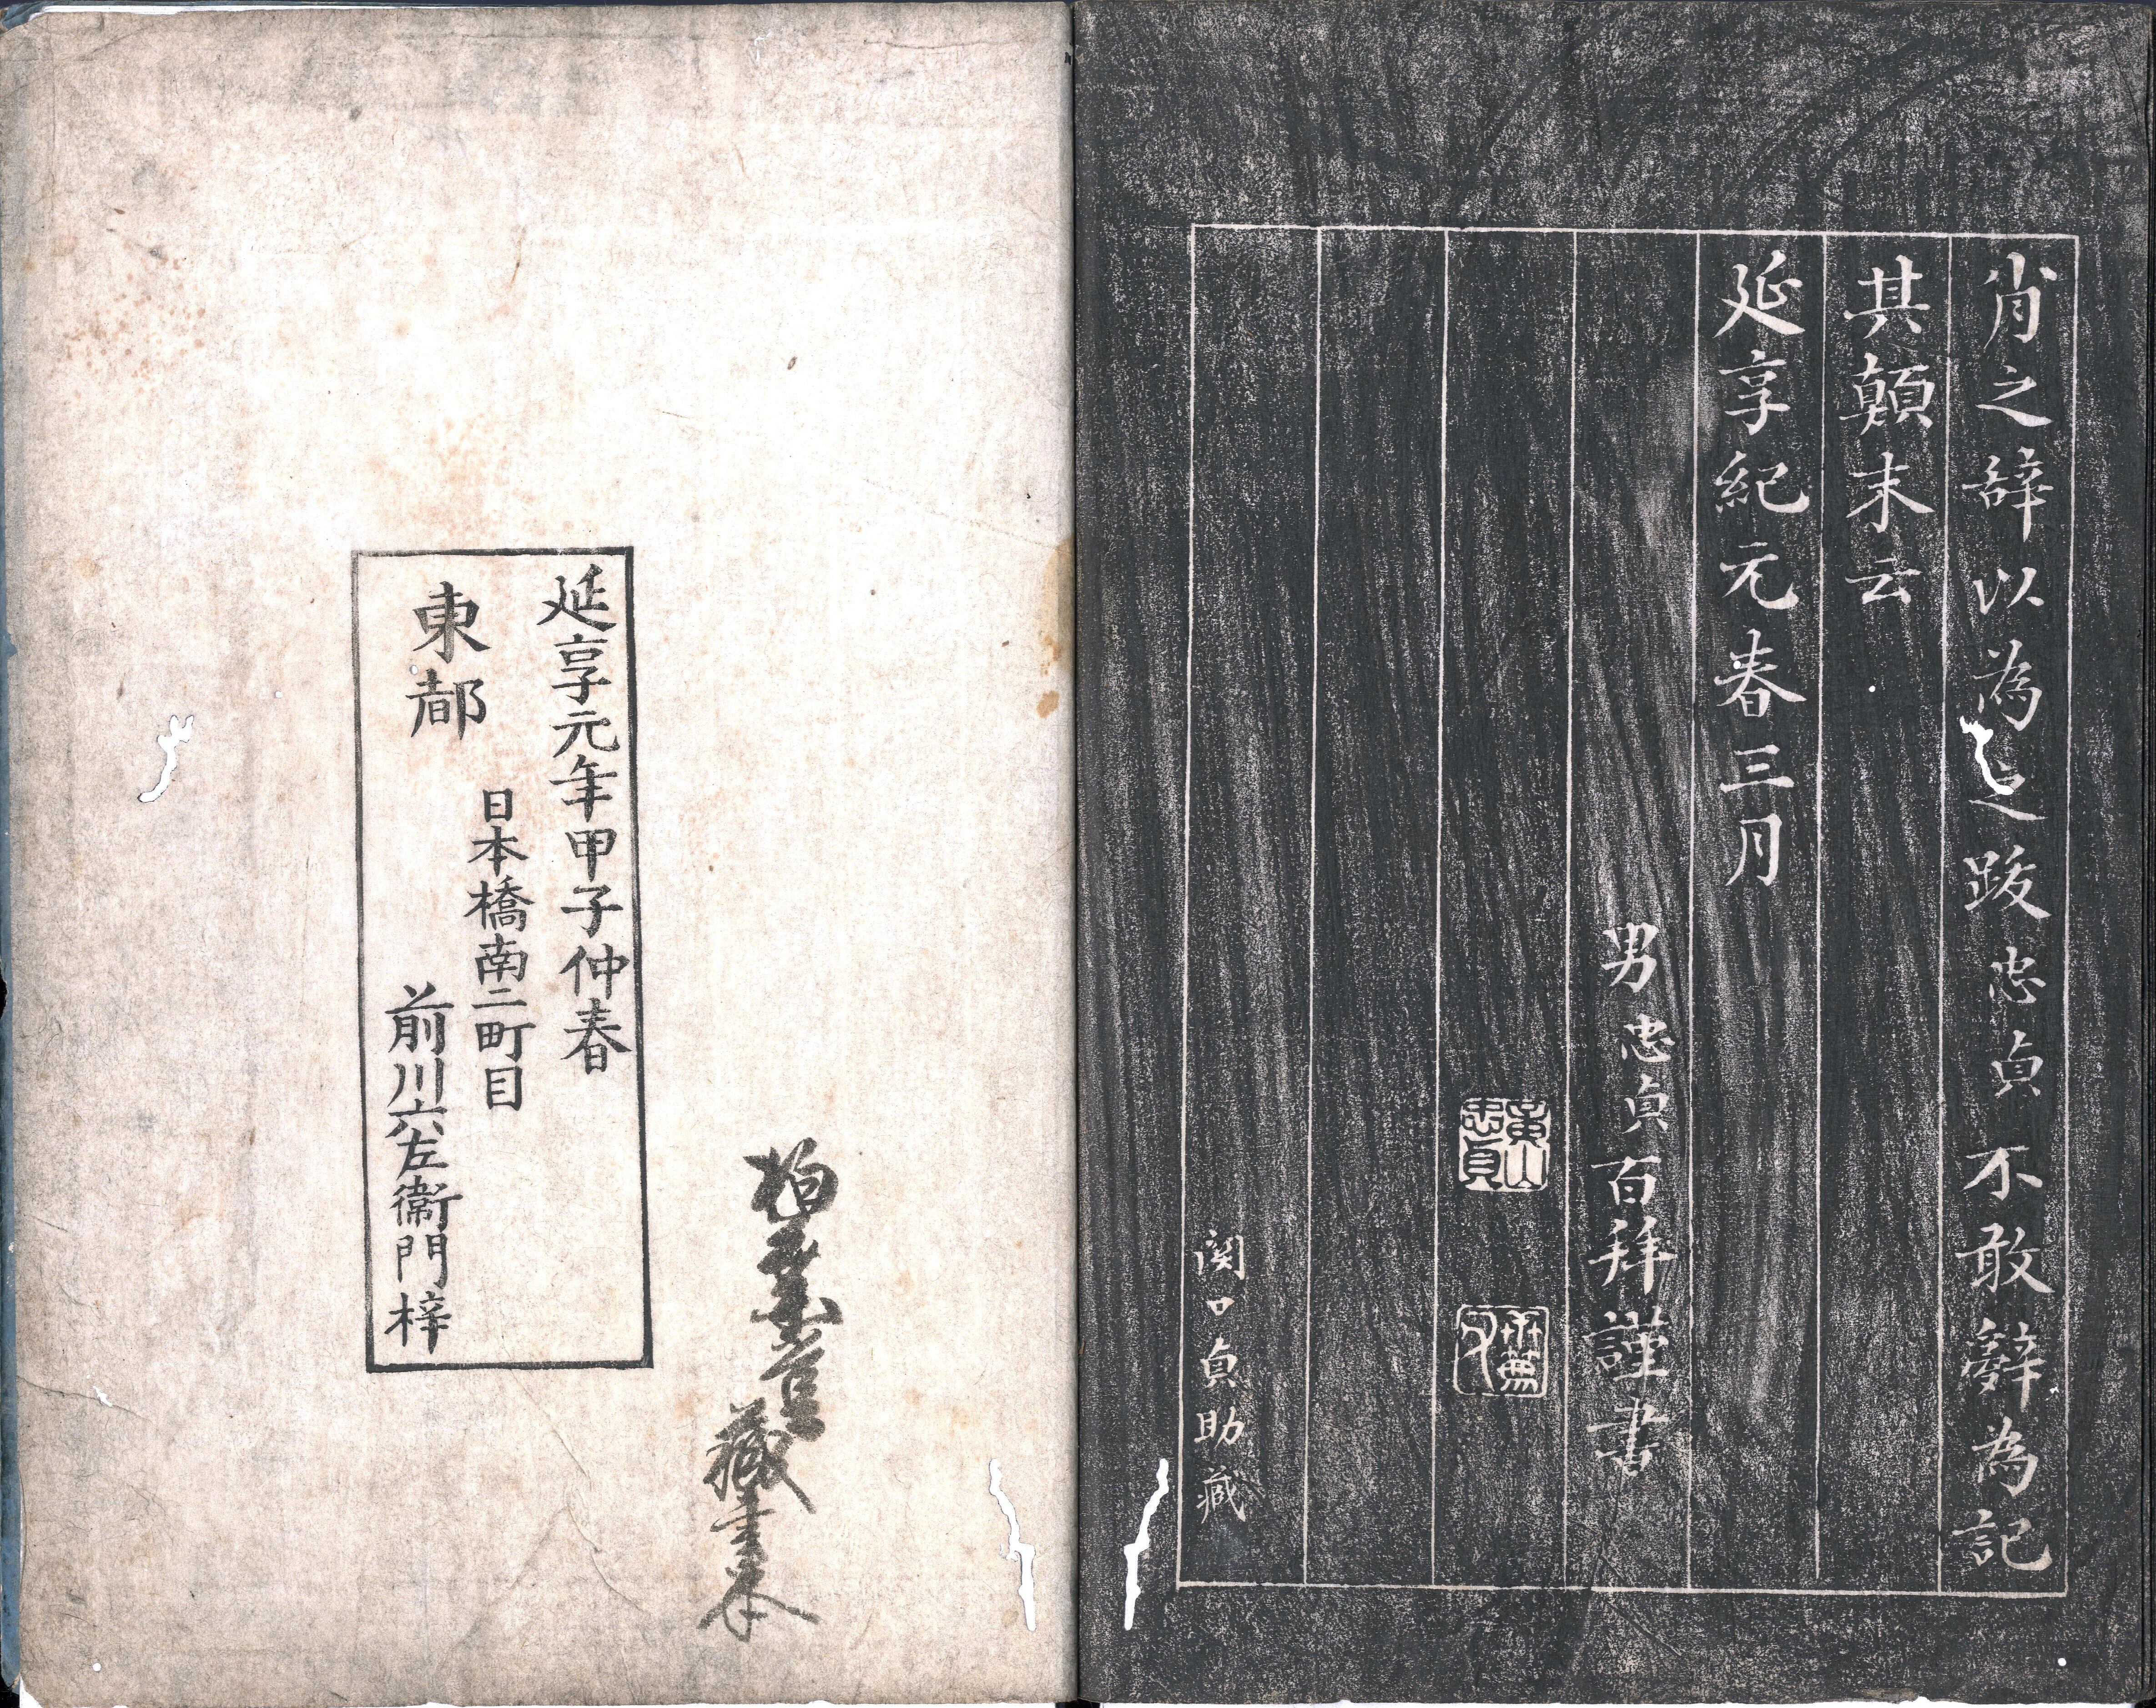 肖之辞以為之跋忠貞不敢辭為記
其顛末云
延享紀元春三月
男忠貞百拜謹書
忠貞
関口貞助蔵
藏書本
延享元年甲子仲春
日本橋南二町目
東都
前川六左衛門梓